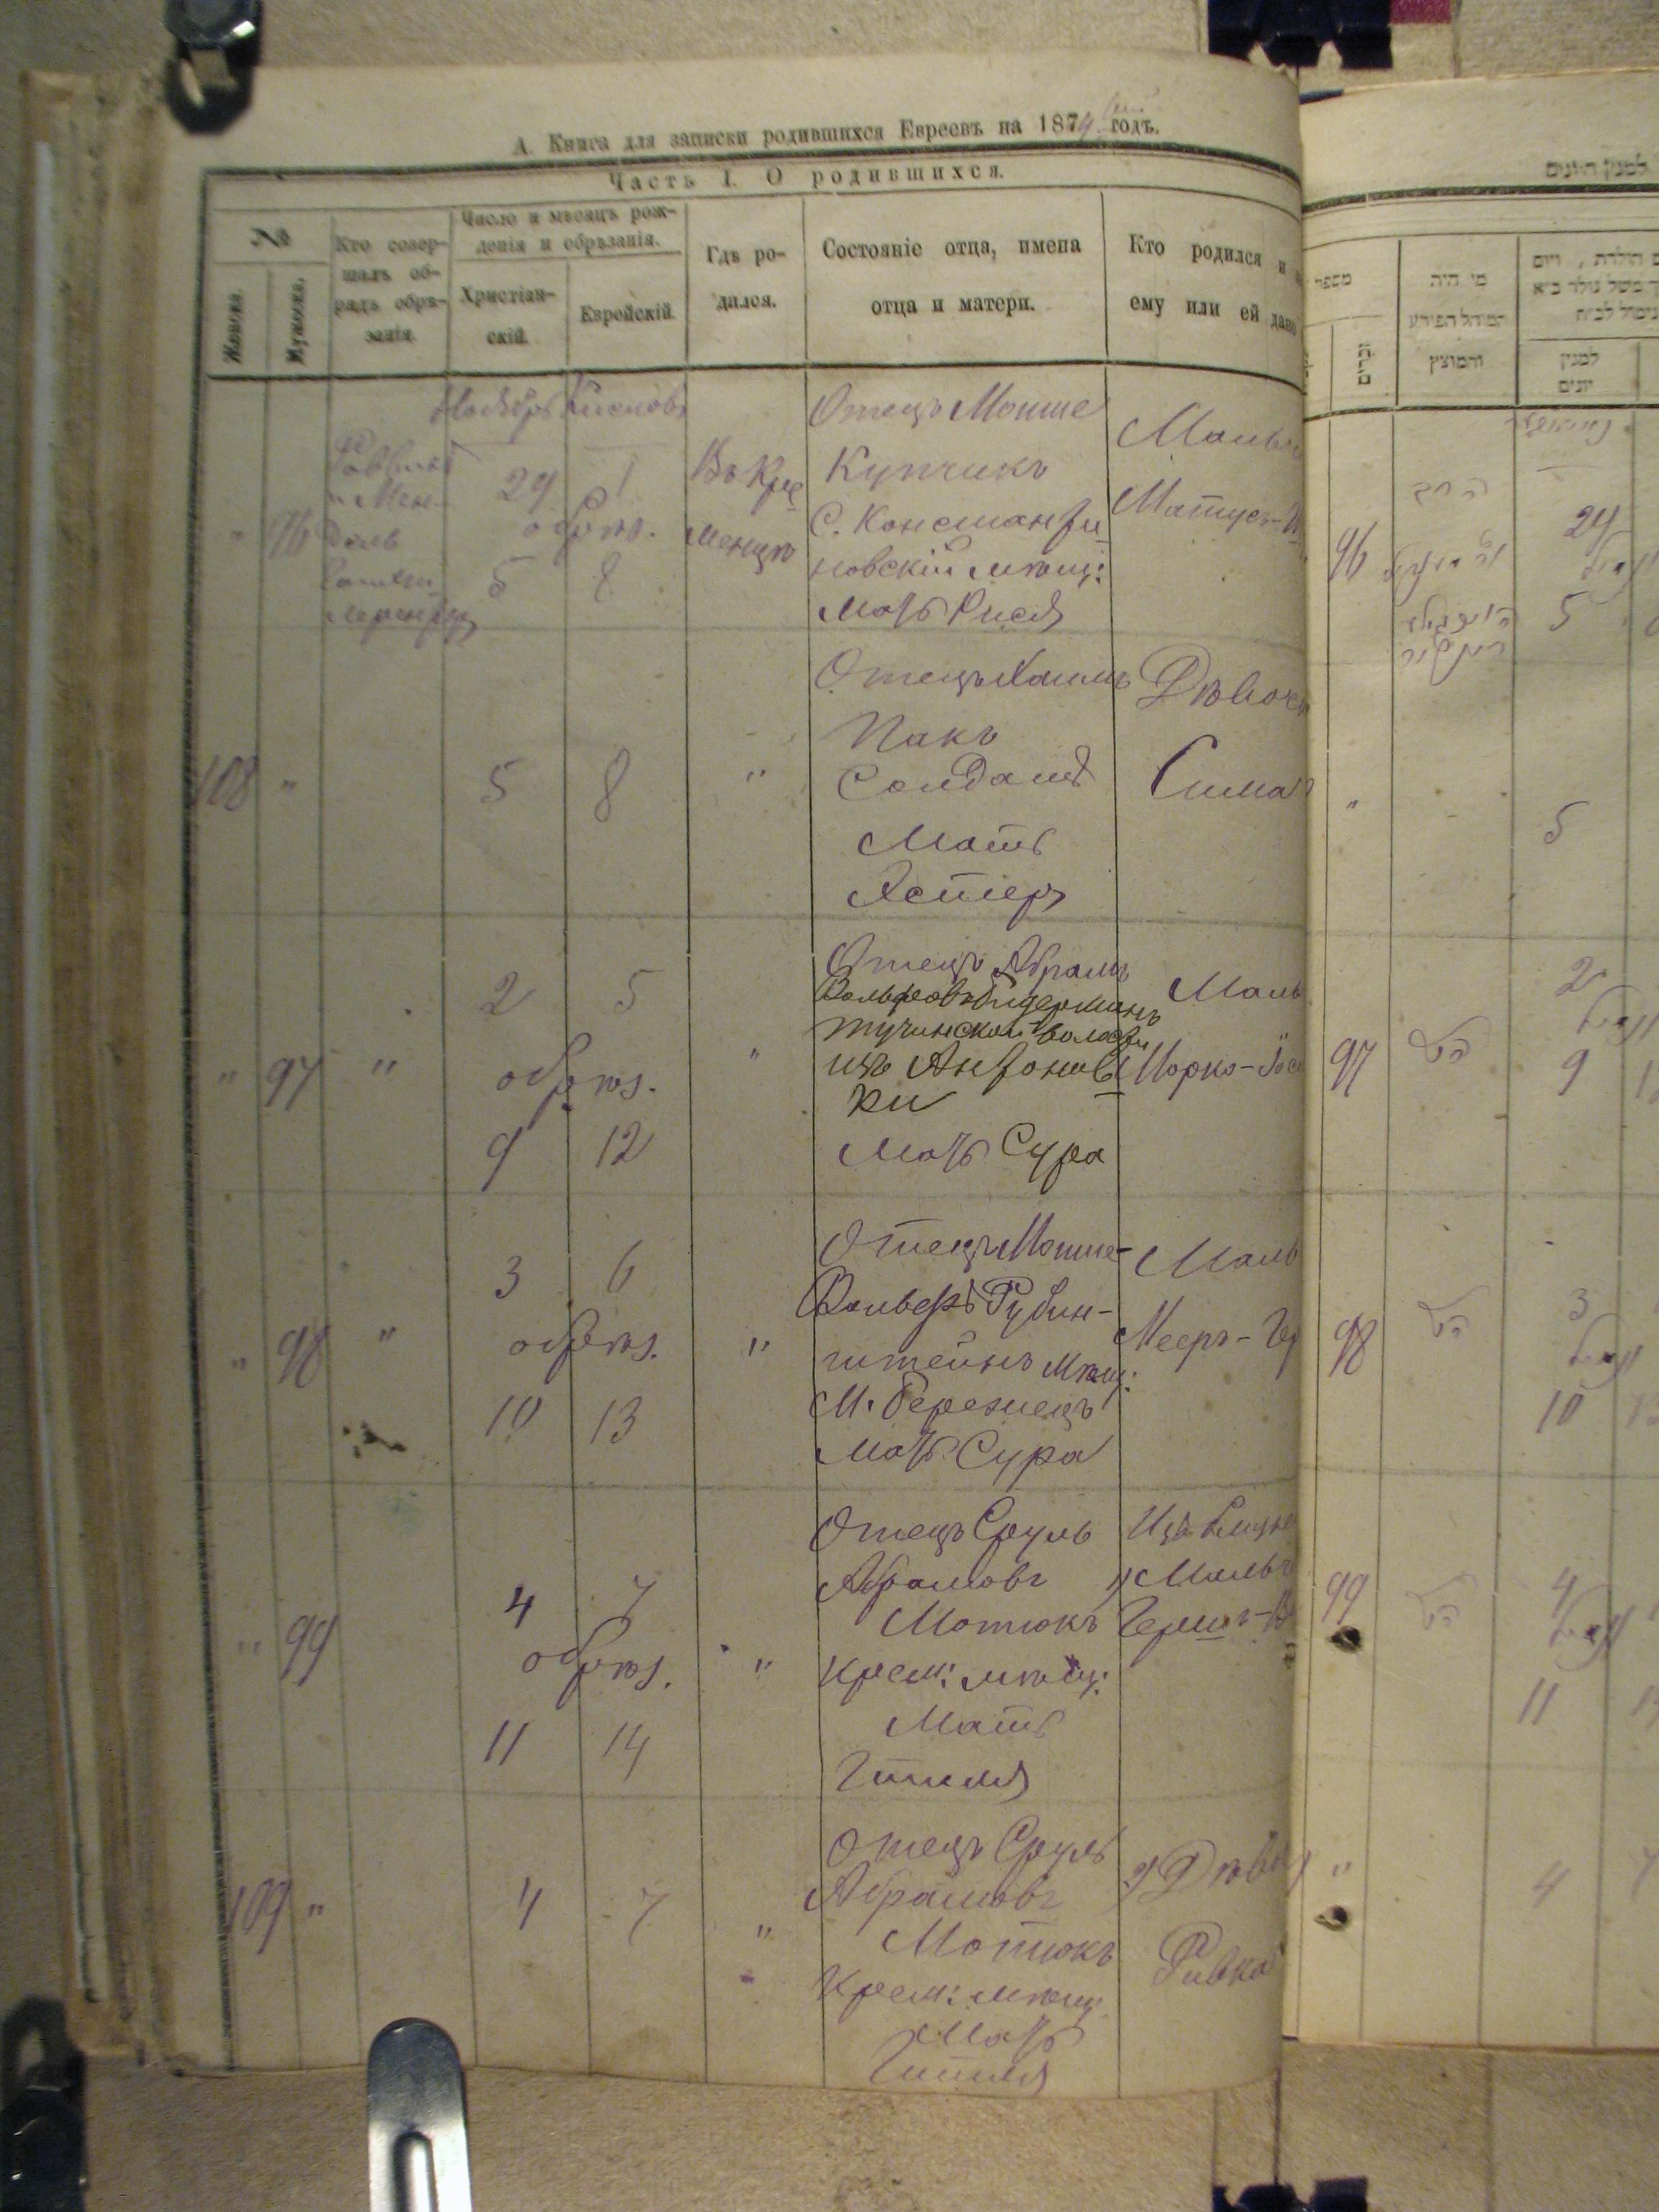 А. Книга для записки родившихся Евреевъ на 1874 годъ.
Часть I. О родившихся.
№
Женска.
Мужеска.
Кто совер-
шалъ об-
рядъ обрѣ-
занія.
Число и мѣсяцъ рож-
денія и обрѣзанія.
Христіан-
скій.
Еврейскій.
Гдѣ ро-
дился.
Состояніе отца, имена
отца и матери.
Кто родился и
ему или ей дано
Ноябрь Кислевъ
" 96
Раввинъ
и Мен-
дель
29 1
обрѣз.
5 8
Въ Кре
менцѣ
Отецъ Мошше
Купчикъ
С. Константи
новскій мѣщ:
Мать Рися
Мальч
Матусъ-
108 "
5 8
"
Отецъ Хаимъ
Пакъ
Солдатъ
Мать
Эстеръ
Дѣвочк
Сима
" 97 "
2 5
обрѣз.
9 12
"
Отецъ Абрамъ
Вольфовъ Бидерманъ
Тучинской волости
изъ Антонов
ки
Мать Сура
Маль
Морко-Іос
" 98 "
3 6
обрѣз.
10 13
"
Отецъ Мошше-
Вольфъ Рубин-
штейнъ Мѣщ:
М. Бережецъ
Мать Сура
Маль
Мееръ-
" 99
4 7
обрѣз.
11 14
"
Отецъ Сруль
Абрамовъ
Мотюкъ
Крем: мѣщ:
Мать
Гитля
Изъ близне
1) Мальч
Гершъ-
109 "
4 7
"
Отецъ Сруль
Абрамовъ
Мотюкъ
Крем: мѣщ
Мать
Гитля
2) Дѣво
Ривка
למנין היונים
מספר
זכרים
מי היה
המוהל הפורע
והמוצץ
למנין
יונים
96
הרב
29
5
"
5
97
הנ״ל
2
9
98
הנ״ל
3
10
99
הנ״ל
4
11
"
4
7